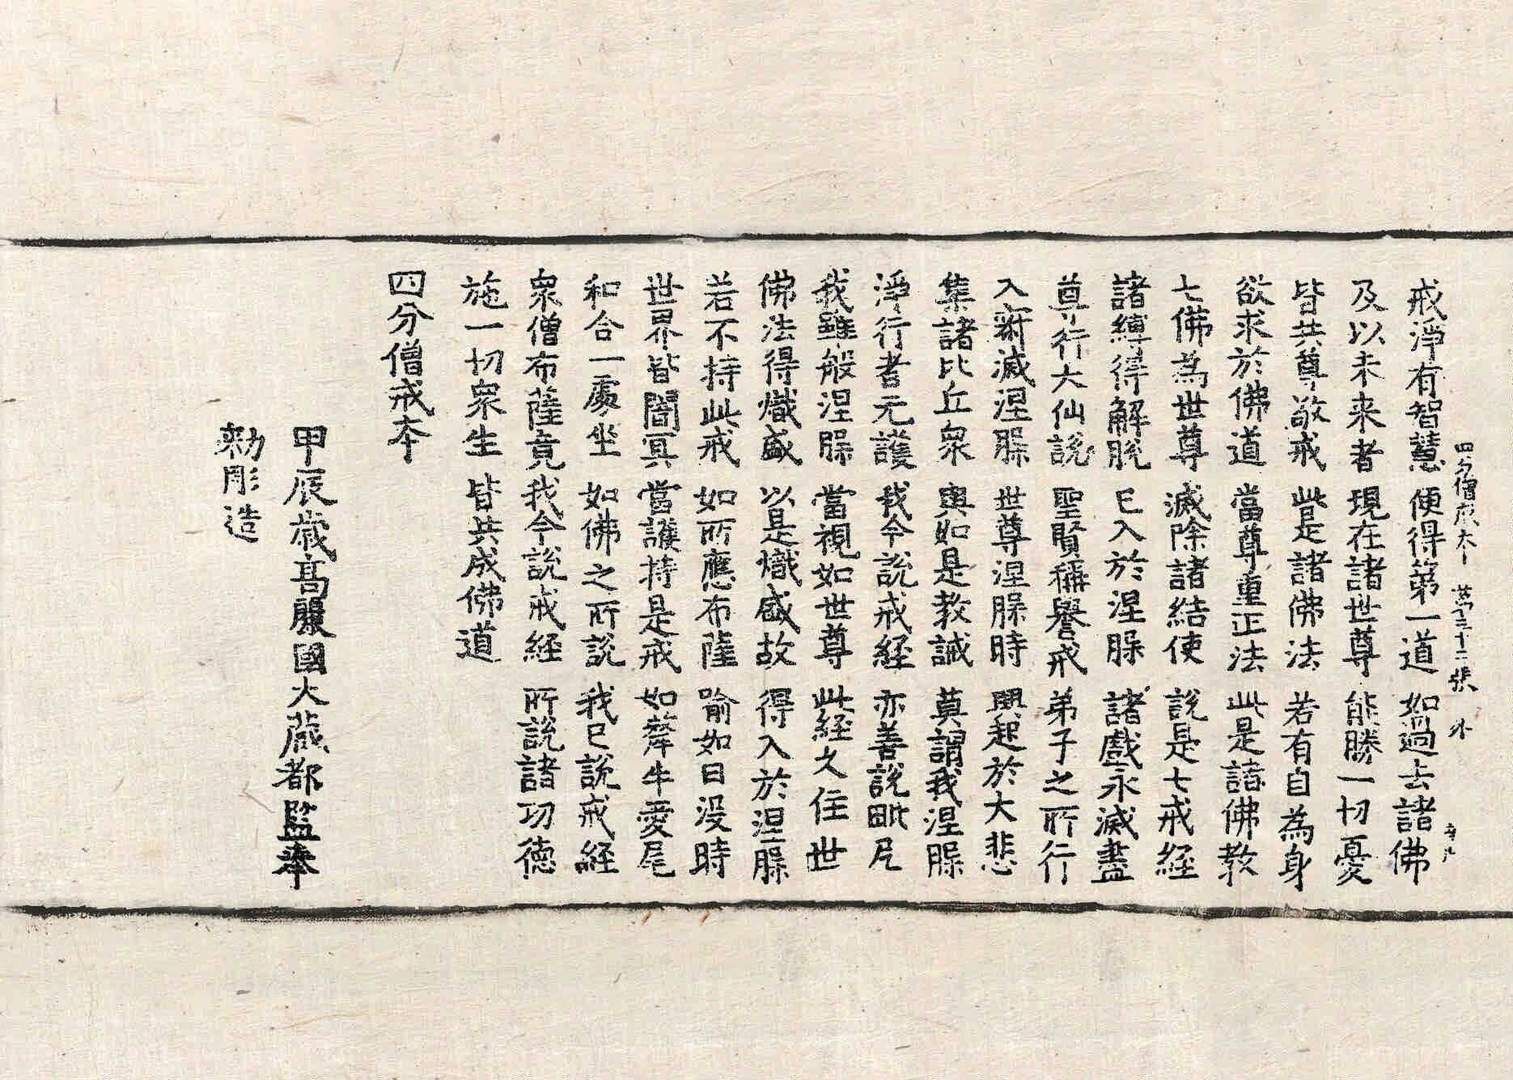 四分僧戒本 第三十二張 外
戒淨有智慧 便得第一道 如過去諸佛
及以未來者 現在諸世尊 能勝一切憂
皆共尊敬戒 此是諸佛法 若有自為身
欲求於佛道 當尊重正法 此是諸佛教
七佛為世尊 滅除諸結使 說是七戒經
諸縛得解脫 已入於涅槃 諸戲永滅盡
尊行大仙說 聖賢稱譽戒 弟子之所行
入寂滅涅槃 世尊涅槃時 興起於大悲
集諸比丘衆 與如是教誡 莫謂我涅槃
淨行者无護 我今說戒經 亦善說毗尼
我雖般涅槃 當視如世尊 此經久住世
佛法得熾盛 以是熾盛故 得入於涅槃
若不持此戒 如所應布薩 喻如日没時
世界皆闇冥 當護持是戒 如犛牛愛尾
和合一處坐 如佛之所說 我已說戒經
衆僧布薩竟 我今說戒經 所說諸功德
施一切衆生 皆共成佛道
四分僧戒本
甲辰歲高麗國大藏都監奉
勑彫造